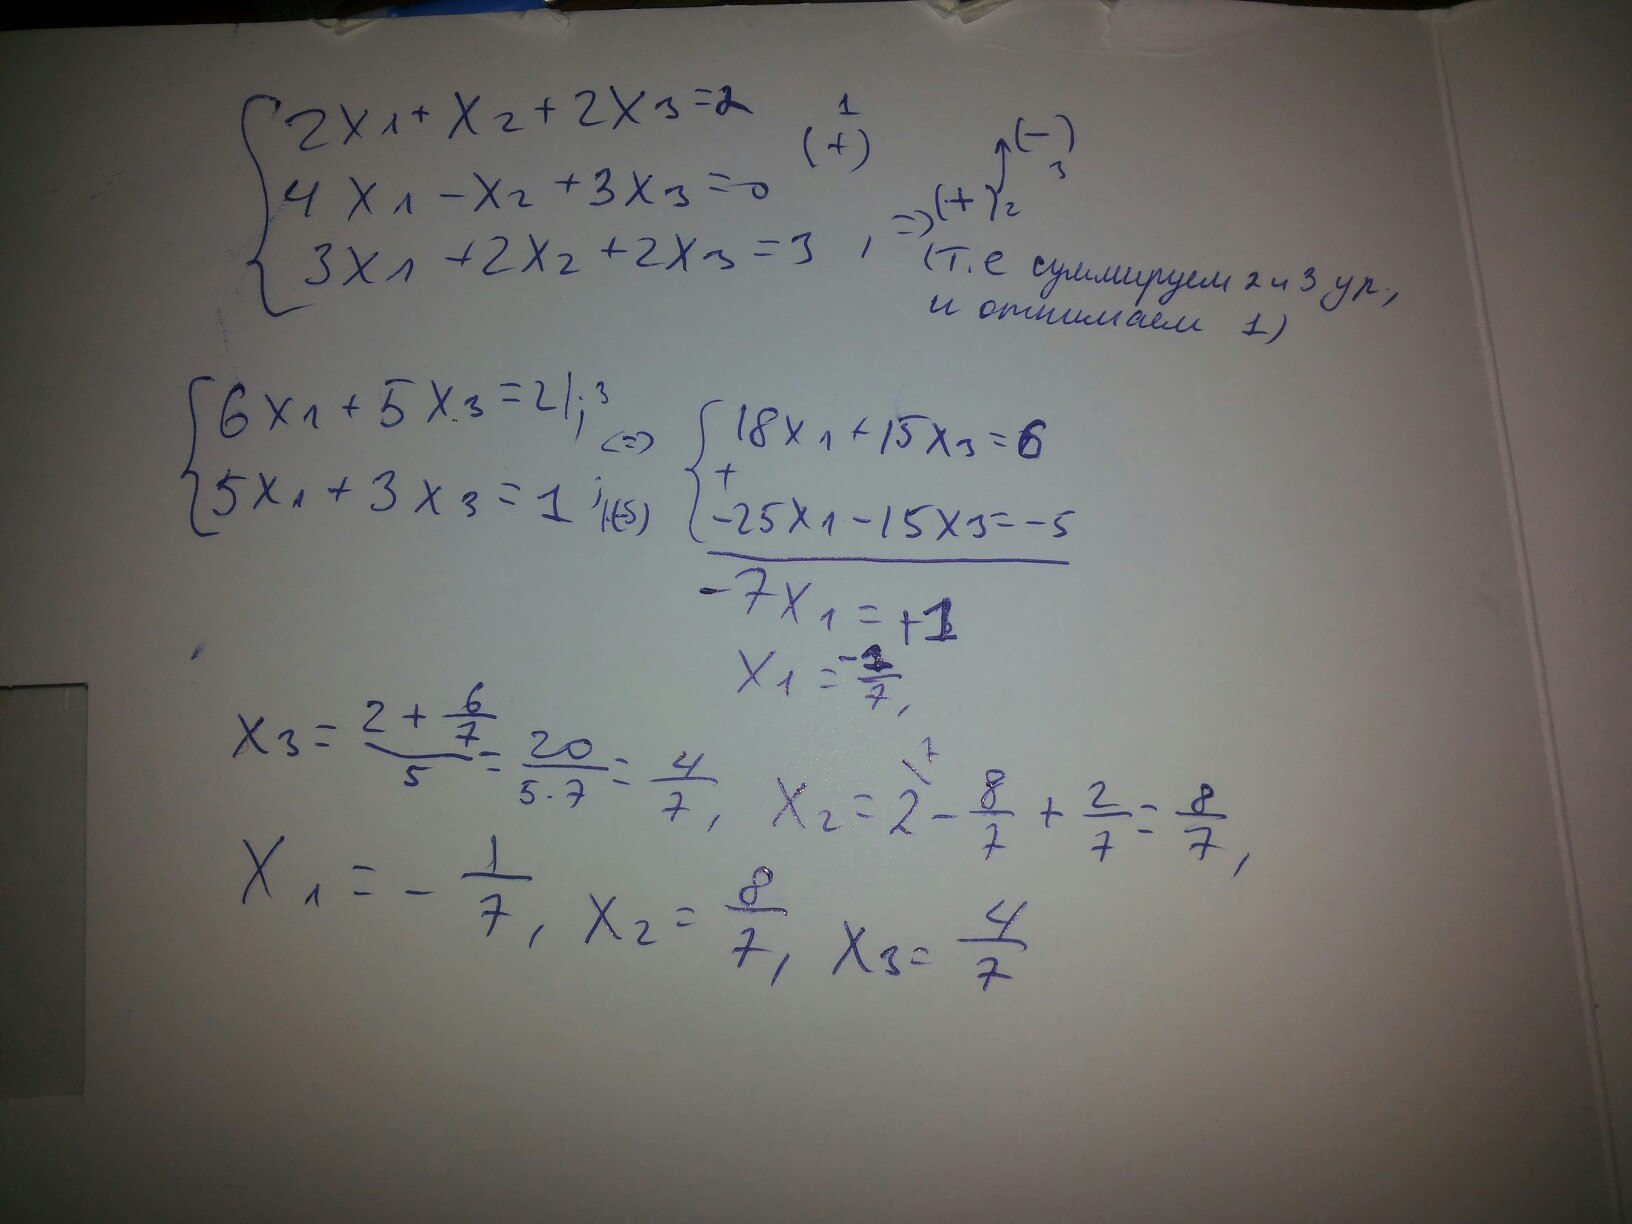 2x1 + x2 + 2x3 = 2
4x1 - x2 + 3x3 = 0
3x1 + 2x2 + 2x3 = 3 , =>
1
(+)
(-)
3
(+)2
(т.е суммируем 2 и 3 ур.,
и отнимаем 1)
6x1 + 5x3 = 2 |·3
5x1 + 3x3 = 1 ; |(-5)
<=>
18x1 + 15x3 = 6
+
-25x1 - 15x3 = -5
-7x1 = +1
x1 = -1/7 ,
x3 = (2 + 6/7)/5 = 20/(5·7) = 4/7 , x2 = 2\7 - 8/7 + 2/7 = 8/7 ,
x1 = - 1/7 , x2 = 8/7 , x3 = 4/7